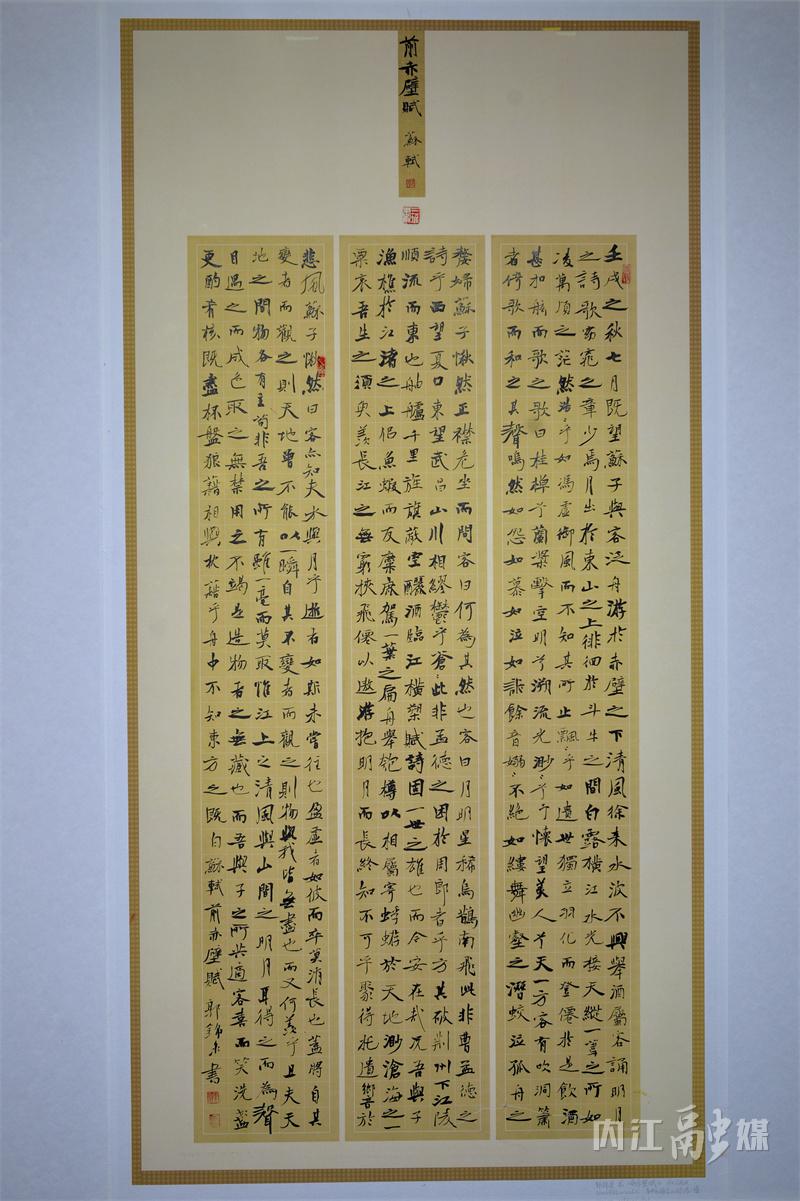 前赤壁賦
蘇軾
壬戌之秋七月既望蘇子與客泛舟游於赤壁之下清風徐来水波不興舉酒屬客誦明月
之詩歌窈窕之章少焉月出於東山之上徘徊於斗牛之間白露橫江水光接天縱一葦之所如
凌萬頃之茫然浩〻乎如馮虛御風而不知其所止飄〻乎如遺世獨立羽化而登僊於是飲酒
甚扣舷而歌之歌曰桂棹兮蘭槳擊空明兮溯流光渺〻兮予懷望美人兮天一方客有吹洞簫
者倚歌而和之其聲嗚然如怨如慕如泣如訴餘音嫋〻不絕如縷舞幽壑之潛蛟泣孤舟之
嫠婦蘇子愀然正襟危坐而問客曰何為其然也客曰月明星稀烏鵲南飛此非曹孟德之
詩乎西望夏口東望武昌山川相繆鬱乎蒼〻此非孟德之困於周郎者乎方其破荊州下江陵
順流而東也舳艫千里旌旗蔽空釃酒臨江橫槊賦詩固一世之雄也而今安在哉況吾與子
漁樵於江渚之上侶魚蝦而友麋鹿駕一葉之扁舟舉匏樽以相屬寄蜉蝣於天地渺滄海之一
粟哀吾生之須臾羨長江之無窮挾飛僊以遨游抱明月而長終知不可乎驟得托遺響於
悲風蘇子愀然曰客亦知夫水與月乎逝者如斯未嘗往也盈虛者如彼而卒莫消長也蓋將自其
變者而觀之則天地曾不能以一瞬自其不變者而觀之則物與我皆無盡也而又何羨乎且夫天
地之間物各有主苟非吾之所有雖一毫而莫取惟江上之清風與山間之明月耳得之而為聲
目遇之而成色取之無禁用之不竭是造物者之無藏也而吾與子之所共適客喜而笑洗盞
更酌肴核既盡杯盤狼藉相與枕藉乎舟中不知東方之既白蘇軾前赤壁賦 郭錦書
内江融媒